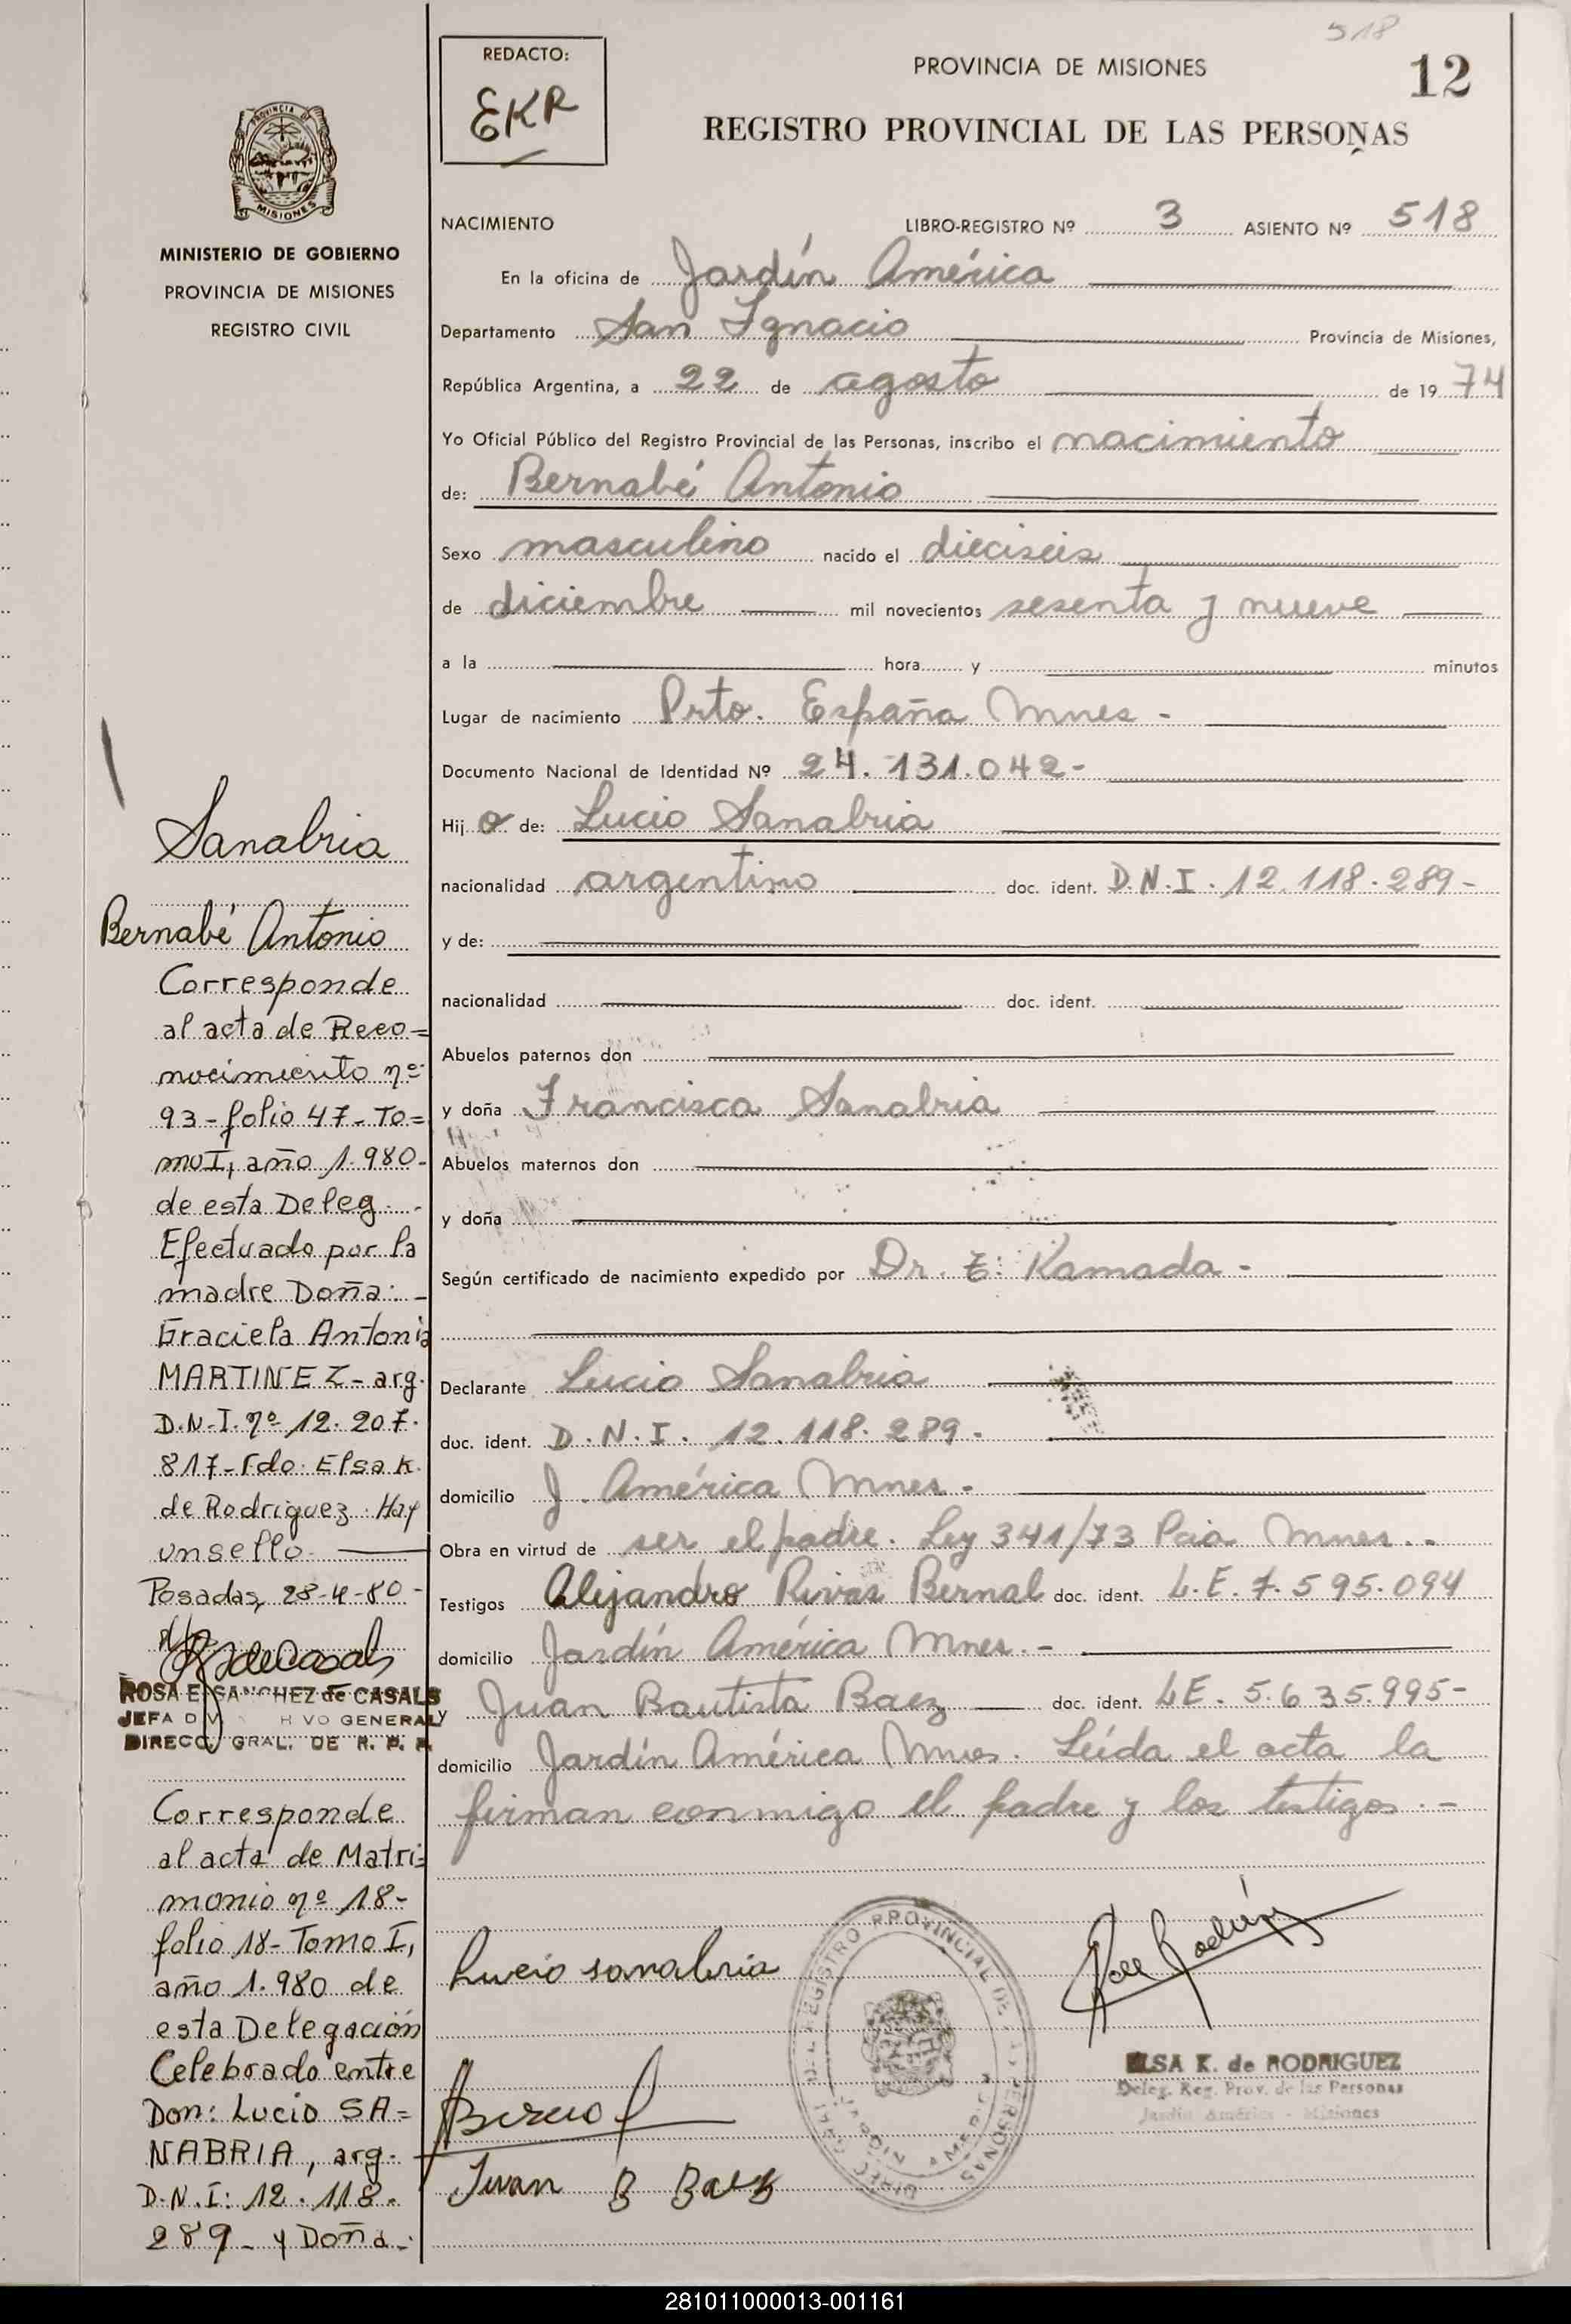 518
REDACTO:
EKR
PROVINCIA DE MISIONES
12
REGISTRO PROVINCIAL DE LAS PERSONAS
PROVINCIA DE
MISIONES
MINISTERIO DE GOBIERNO
PROVINCIA DE MISIONES
REGISTRO CIVIL
NACIMIENTO LIBRO-REGISTRO Nº 3 ASIENTO Nº 518
En la oficina de Jardín América
Departamento San Ignacio Provincia de Misiones,
República Argentina, a 22 de agosto de 19 74
Yo Oficial Público del Registro Provincial de las Personas, inscribo el nacimiento
de: Bernabé Antonio
Sexo masculino nacido el dieciseis
de diciembre mil novecientos sesenta y nueve
a la hora y minutos
Lugar de nacimiento Prto. España Mnes -
Documento Nacional de Identidad Nº 24.131.042-
Hij o de: Lucio Sanabria
nacionalidad argentino doc. ident. D.N.I. 12.118.289-
y de:
nacionalidad doc. ident.
Abuelos paternos don
y doña Francisca Sanabria
Abuelos maternos don
y doña
Según certificado de nacimiento expedido por Dr. E. Kamada -
Declarante Lucio Sanabria
doc. ident. D.N.I. 12.118.289.
domicilio J. América Mnes.
Obra en virtud de ser el padre. Ley 341/73 Pcia Mnes..
Testigos Alejandro Rivas Bernal doc. ident. L.E. 7.595.094
domicilio Jardín América Mnes. -
y Juan Bautista Baez doc. ident. LE. 5.635.995-
domicilio Jardín América Mnes. Leída el acta la
firman conmigo el padre y los testigos. -
Lucio sanabria
Juan B Baez
REGISTRO PROVINCIAL DE LAS PERSONAS
ELSA K. de RODRIGUEZ
Deleg. Reg. Prov. de las Personas
Jardín América - Misiones
Sanabria
Bernabé Antonio
Corresponde
al acta de Reco=
nocimiento nº
93-folio 47-To=
mo I, año 1.980-
de esta Deleg. -
Efectuado por la
madre Doña: -
Graciela Antonia
MARTINEZ- arg.
D.N.I. nº 12.207.
817-Fdo: Elsa K.
de Rodriguez. Hay
un sello.
Posadas, 28-4-80-
ROSA E. SANCHEZ de CASALS
JEFA DIV. GENERAL
DIRECC. GRAL. DE R. P. P.
Corresponde
al acta de Matri=
monio nº 18-
folio 18-Tomo I,
año 1.980 de
esta Delegación
Celebrado entre
Don: Lucio SA=
NABRIA, arg.
D.N.I: 12.118.
289- y Doña:
281011000013-001161